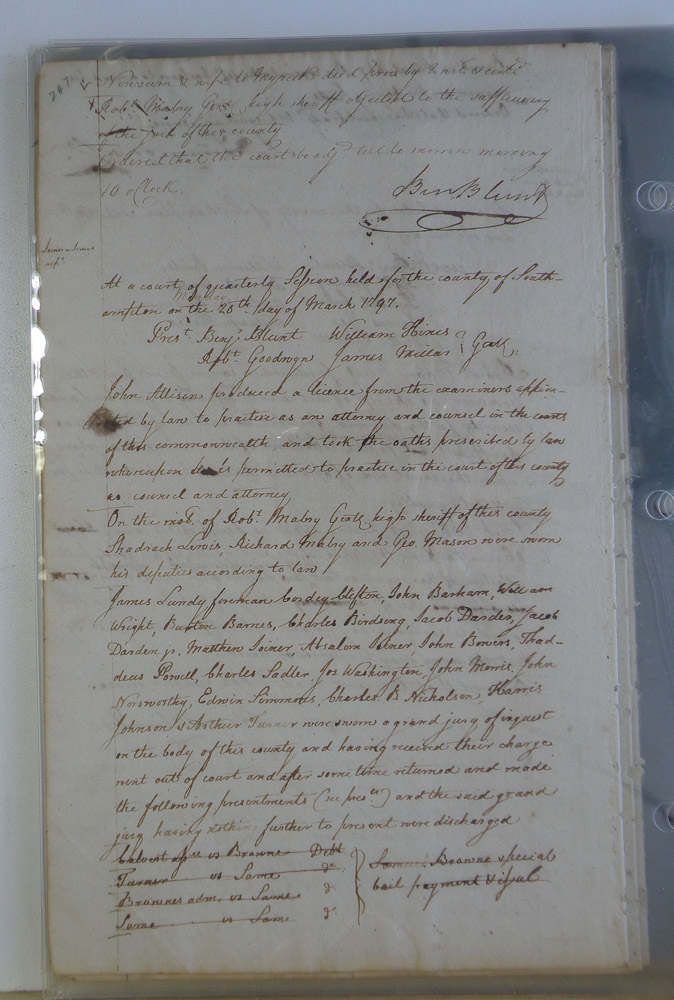 247
Newsum & wife to Myrick deed prov by 2 wits & contd
Robt Mabry Gent. high sheriff objected to the sufficiency
of the Jail of this county
Ordered that the court be adjd till to morrow morning
10 oClock
Ben Blunt
At a court of quarterly Session held for the county of South-
Monday
ampton on the 20th day of March 1797.
Prest Benj. Blunt William Hines
Robt Goodwyn James Millar } Gent.
John Allison produced a licence from the examiners appoin-
ted by law to practise as an attorney and counsel in the courts
of this commonwealth and took the oaths prescribed by law
whereupon he is permitted to practise in the court of this county
as counsel and attorney
On the mo. of Robt Mabry Gent. high sheriff of this county
Shadrach Lewis, Richard Mabry and Geo. Mason were sworn
his deputies according to law
James Lundy foreman Cordey Clifton, John Barham, William
Wright, Burton Barnes, Charles Birdsong, Jacob Darden, Jacob
Darden jr. Matthew Joiner, Absalom Joiner, John Bowers, Thad-
deus Powell, Charles Sadler, Jos Washington, John Morris, John
Norsworthy, Edwin Simmons, Charles B Nicholson, Harris
Johnson & Arthur Turner were sworn a grand jury of inquest
on the body of this county and having received their charge
went out of court and after some time returned and made
the following presentments (see prests) and the said grand
jury having nothing further to present were discharged
Calvert vs Browne Debt
Turner vs Same do
Brownes adm. vs Same d
Same vs Same d
Browne special
bail payment &